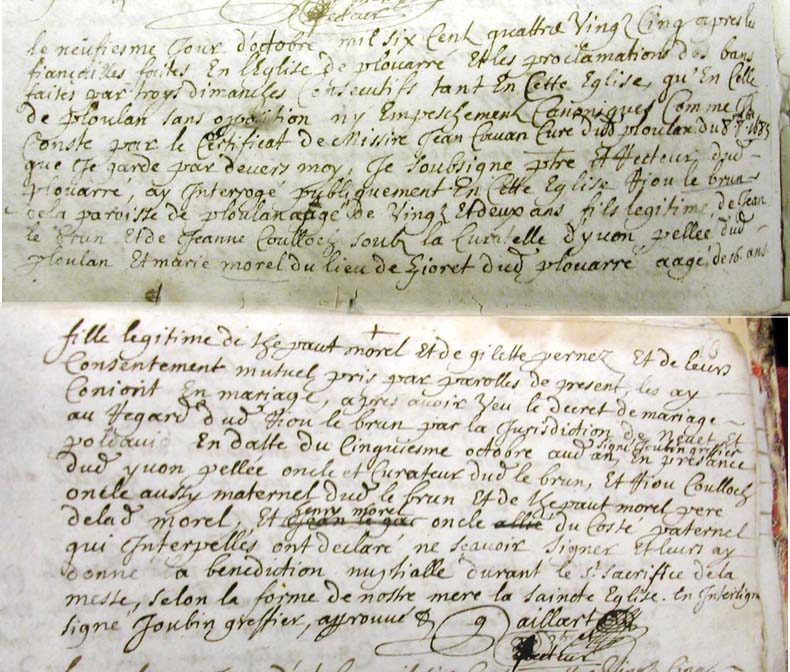 Recteur
le neufiesme Jour d'octobre mil six Cent quattre Vingt Cinq apres les
fiançailles faites En l'Eglise de plouarré Et les proclamations des bans
faites par troys dimanches Consecutifs tant En Cette Eglise, qu'En Celle
de ploulan sans oposition ny Empeschement Canoniques Comme Il
Conste par le Certificat de Missire Jean Cavan Curé dud ploulan du 8e 1685
que Je garde par devers moy, Je soubsigne ptre et Recteur dud
plouarré, ay Interrogé publiquement En Cette Eglise Hiou le brun
de la paroisse de ploulan aagé de Vingt Et deux ans fils legitime de Jean
le Brun Et de Jeanne Coulloch soubz la Curatelle d'yvon pellée dud
ploulan Et marie morel du lieu de dud plouarré aagé de 16 ans
fille legitime de thepaut morel Et de gilette pernez Et de leurs
Consentement mutuel pris par parolles de present les ay
Conioint En mariage, apres avoir Veu le decret de mariage
au Regard dud Hiou le brun par la Jurisdiction de Nevet Et
poldavid En datte du Cinquiesme octobre aud an, signé Joubin greffier En presance
dud yvon pellée oncle et Curateur dud le brun, Et Hiou Coulloch
oncle aussy maternel dud le brun Et de thepaut morel pere
de lad morel, Et henry morel Jean le gac oncle allié du Costé paternel
qui Interpellés ont declaré ne sçavoir signer Et leurs ay
donné la benediction nuptialle durant le St sacrifice de la
messe, selon la forme de nostre mere la saincte Eglise. En Interligne
signe Joubin greffier, approuvé &
g aillart
Recteur